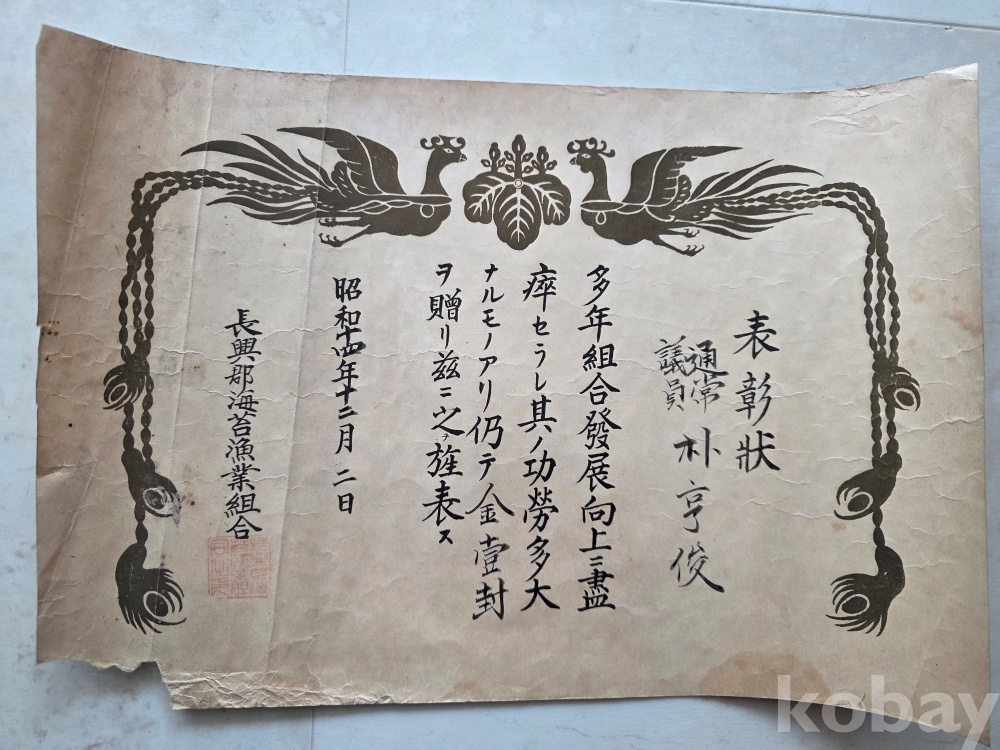 表彰狀
通常
議員 朴亨俊
多年組合發展向上ニ盡
瘁セラレ其ノ功勞多大
ナルモノアリ仍テ金壹封
ヲ贈リ茲ニ之ヲ旌表ス
昭和十四年十二月二日
長興郡海苔漁業組合
kobay